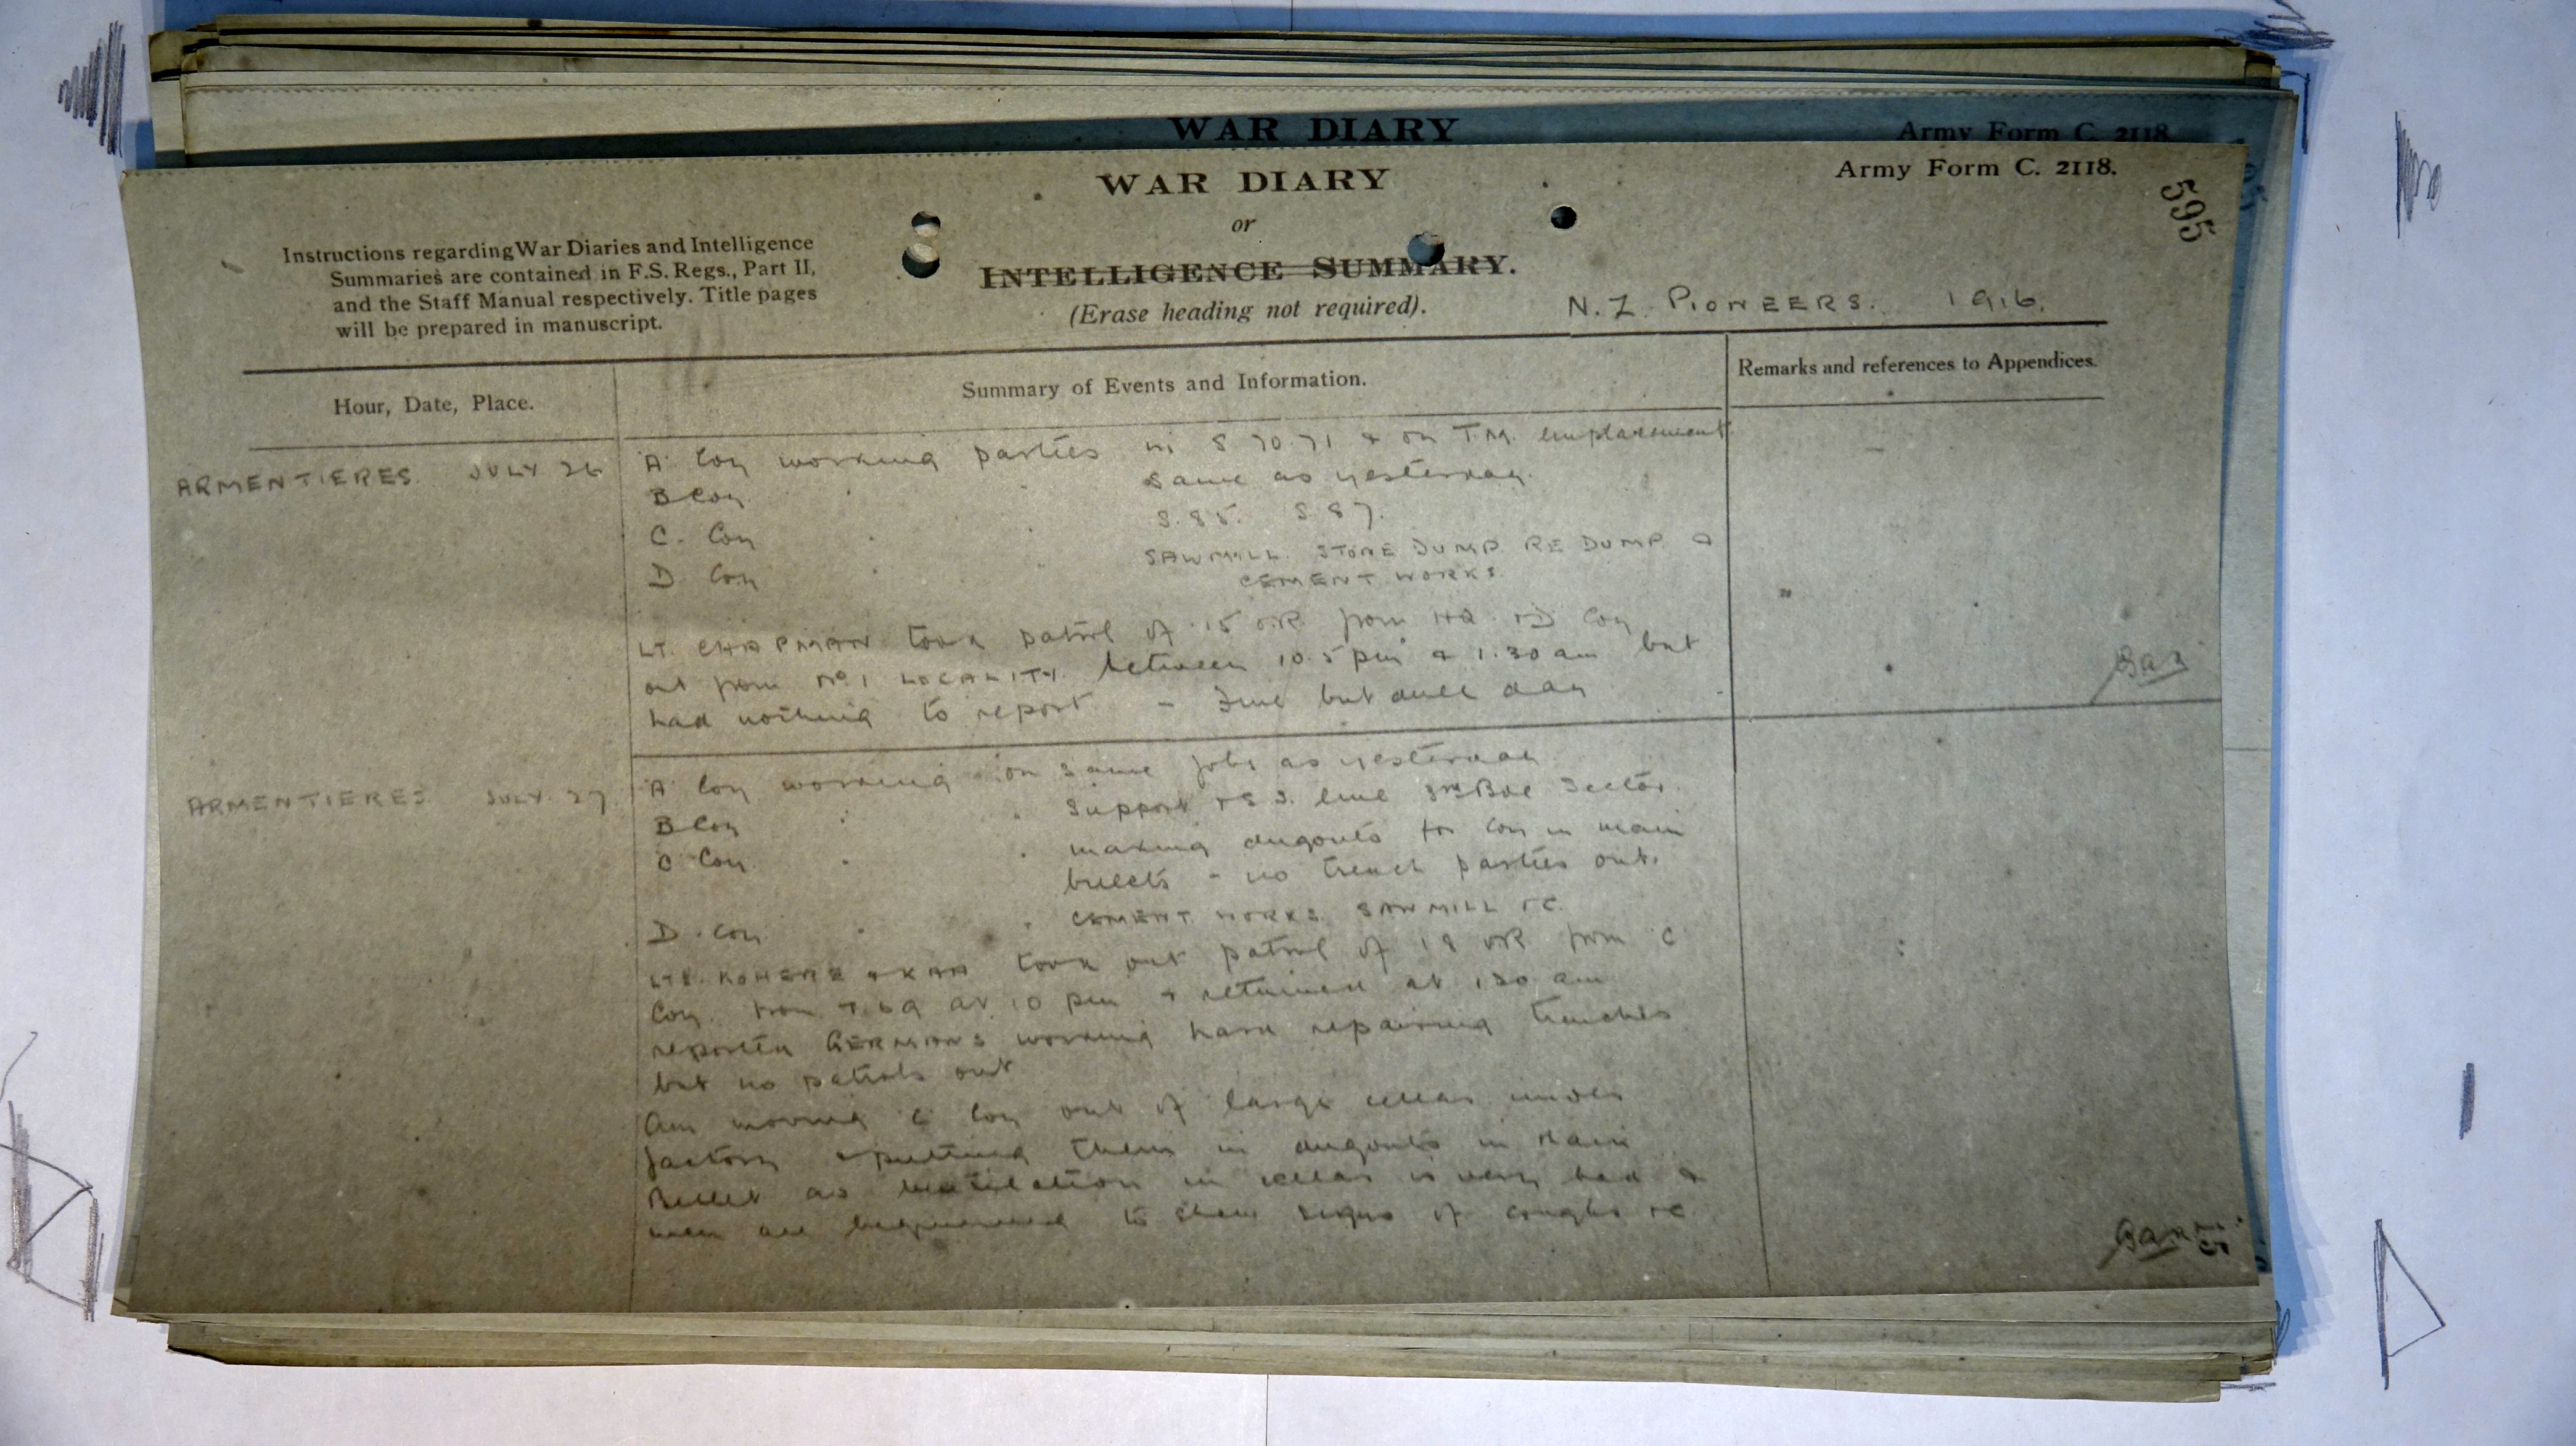 WAR DIARY
Army Form C. 2118
WAR DIARY
Army Form C. 2118.
595
or
INTELLIGENCE SUMMARY.
(Erase heading not required).
Instructions regarding War Diaries and Intelligence
Summaries are contained in F.S. Regs., Part II,
and the Staff Manual respectively. Title pages
will be prepared in manuscript.
N.Z. PIONEERS. 1916.
Hour, Date, Place.
Summary of Events and Information.
Remarks and references to Appendices.
ARMENTIERES. JULY 26
A Coy working parties in S 70.71 & on T.M. emplacement
B Coy " " same as yesterday.
C. Coy " " S.85. S 87.
D Coy " " SAWMILL. STORE DUMP. RE DUMP &
CEMENT WORKS.
LT. CHAPMAN took patrol of 15 O.R. from HQ & D Coy
out from No 1 LOCALITY between 10.5 pm & 1.30 am but
had nothing to report - Fine but dull day
ARMENTIERES JULY 27
A Coy working on same jobs as yesterday
B Coy " " Support & S.S. line 3rd Bde Sector.
C Coy " " making dugouts for Coy in main
billets - no trench parties out.
D. Coy " " CEMENT WORKS. SAWMILL &C.
LTS. KOHERE & KAA took out patrol of 18 OR from C
Coy. from T 69 at 10 pm & returned at 130 am
reported GERMANS working hard repairing trenches
but no patrols out
Am moving C Coy out of large cellar under
factory & putting them in dugouts in main
Billet as ventilation in cellar is very bad &
men are beginning to show signs of coughs &c